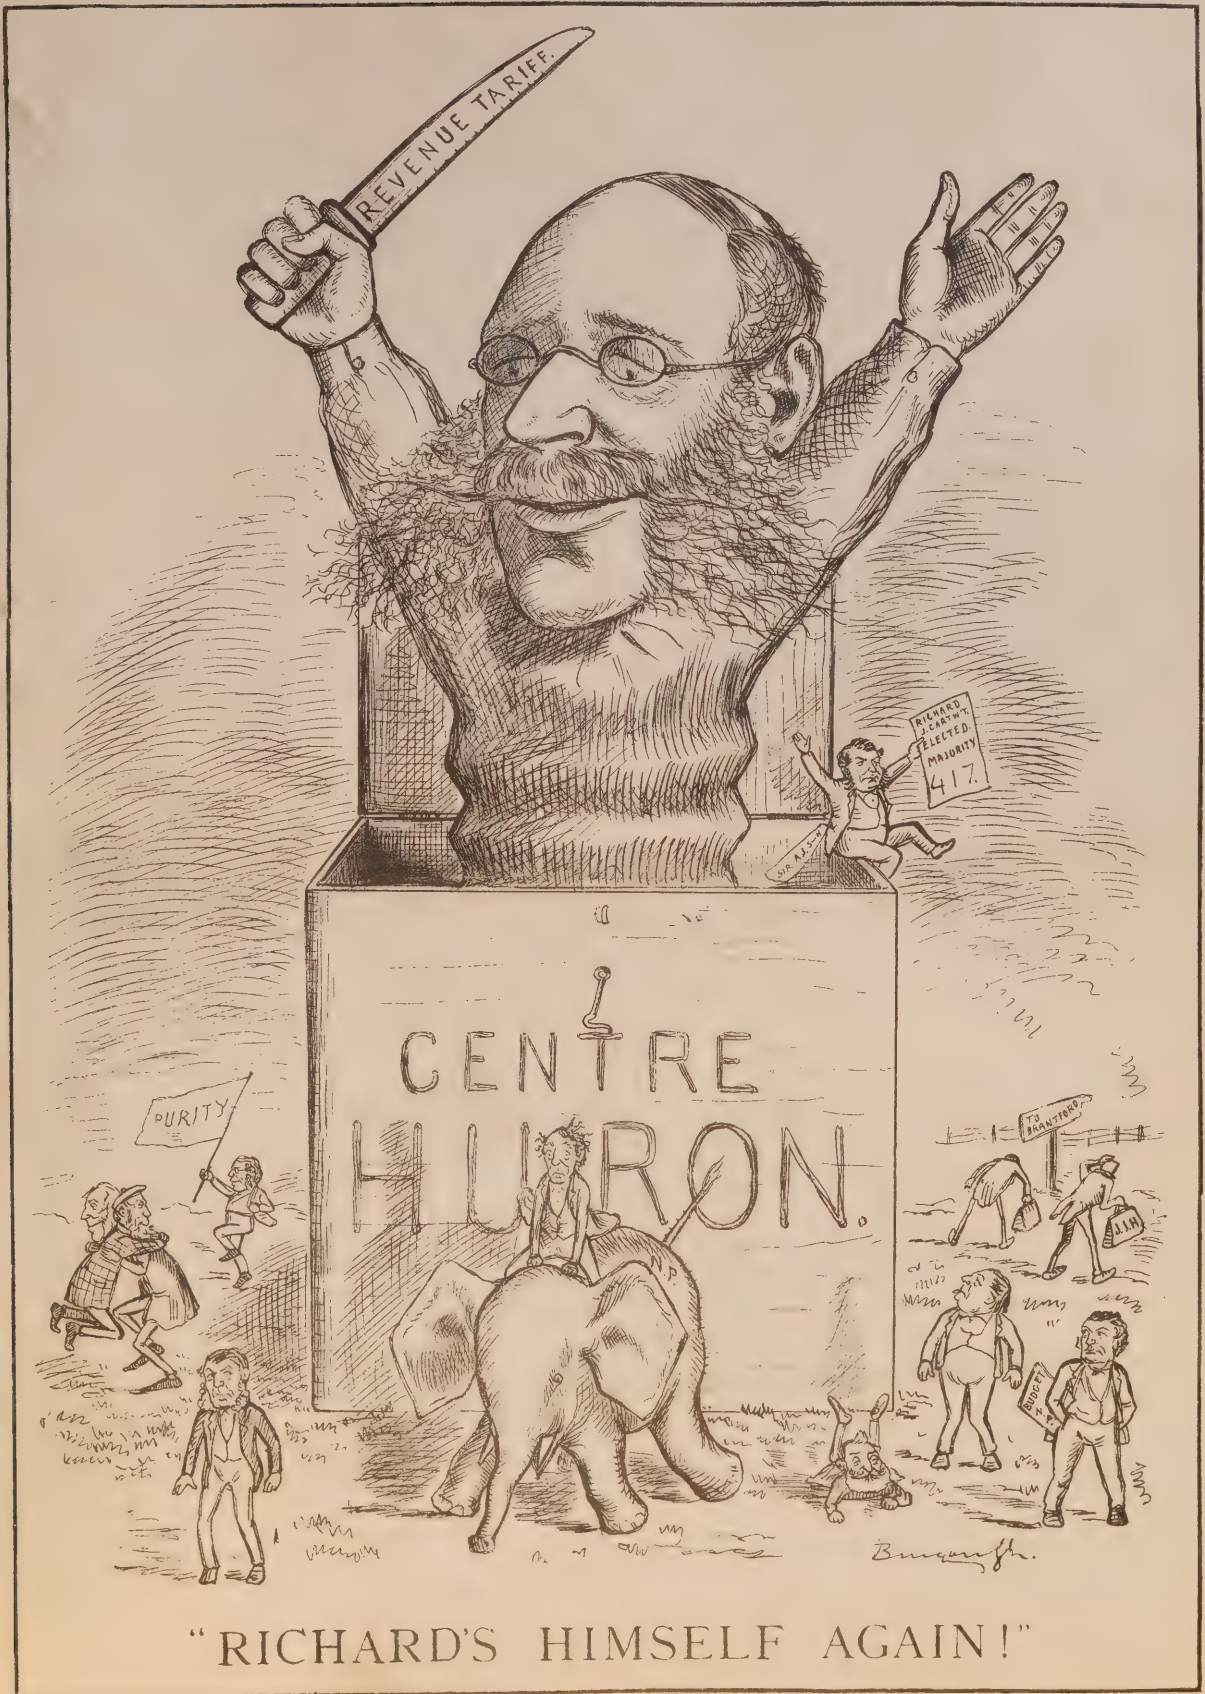 REVENUE TARIFF.
RICHARD
J. CARTW'T.
ELECTED.
MAJORITY
417.
CENTRE
HURON.
PURITY
TO
BRANTFORD,
N.P.
BUDGET
N.P.
"RICHARD'S HIMSELF AGAIN!"